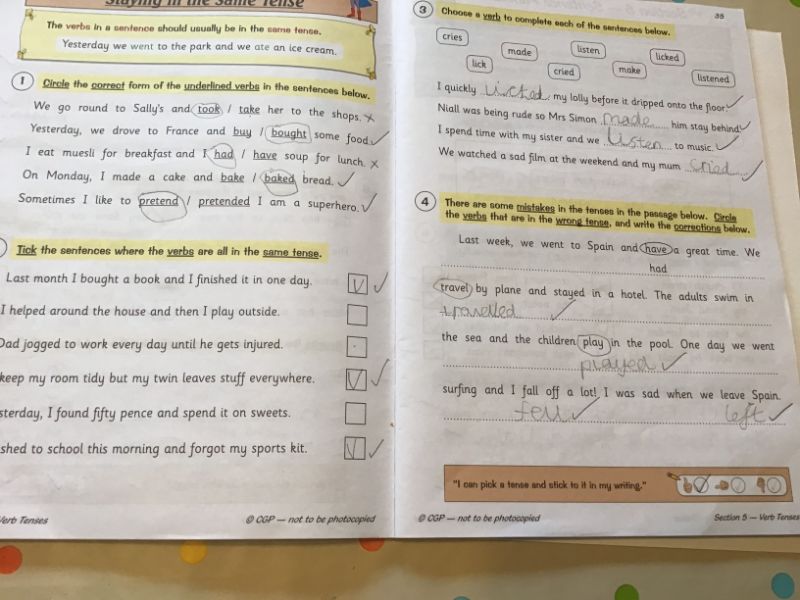 Staying in the Same Tense
The verbs in a sentence should usually be in the same tense.
Yesterday we went to the park and we ate an ice cream.
1 Circle the correct form of the underlined verbs in the sentences below.
We go round to Sally's and took / take her to the shops.
Yesterday, we drove to France and buy / bought some food.
I eat muesli for breakfast and I had / have soup for lunch.
On Monday, I made a cake and bake / baked bread.
Sometimes I like to pretend / pretended I am a superhero.
Tick the sentences where the verbs are all in the same tense.
Last month I bought a book and I finished it in one day.
I helped around the house and then I play outside.
Dad jogged to work every day until he gets injured.
keep my room tidy but my twin leaves stuff everywhere.
sterday, I found fifty pence and spend it on sweets.
shed to school this morning and forgot my sports kit.
Verb Tenses
© CGP — not to be photocopied
35
3 Choose a verb to complete each of the sentences below.
cries made listen licked
lick cried make listened
I quickly licked my lolly before it dripped onto the floor.
Niall was being rude so Mrs Simon made him stay behind.
I spend time with my sister and we listen to music.
We watched a sad film at the weekend and my mum cried
4 There are some mistakes in the tenses in the passage below. Circle
the verbs that are in the wrong tense, and write the corrections below.
Last week, we went to Spain and have a great time. We
had
travel by plane and stayed in a hotel. The adults swim in
travelled
the sea and the children play in the pool. One day we went
played
surfing and I fall off a lot! I was sad when we leave Spain.
fell left
"I can pick a tense and stick to it in my writing."
© CGP — not to be photocopied
Section 5 — Verb Tenses